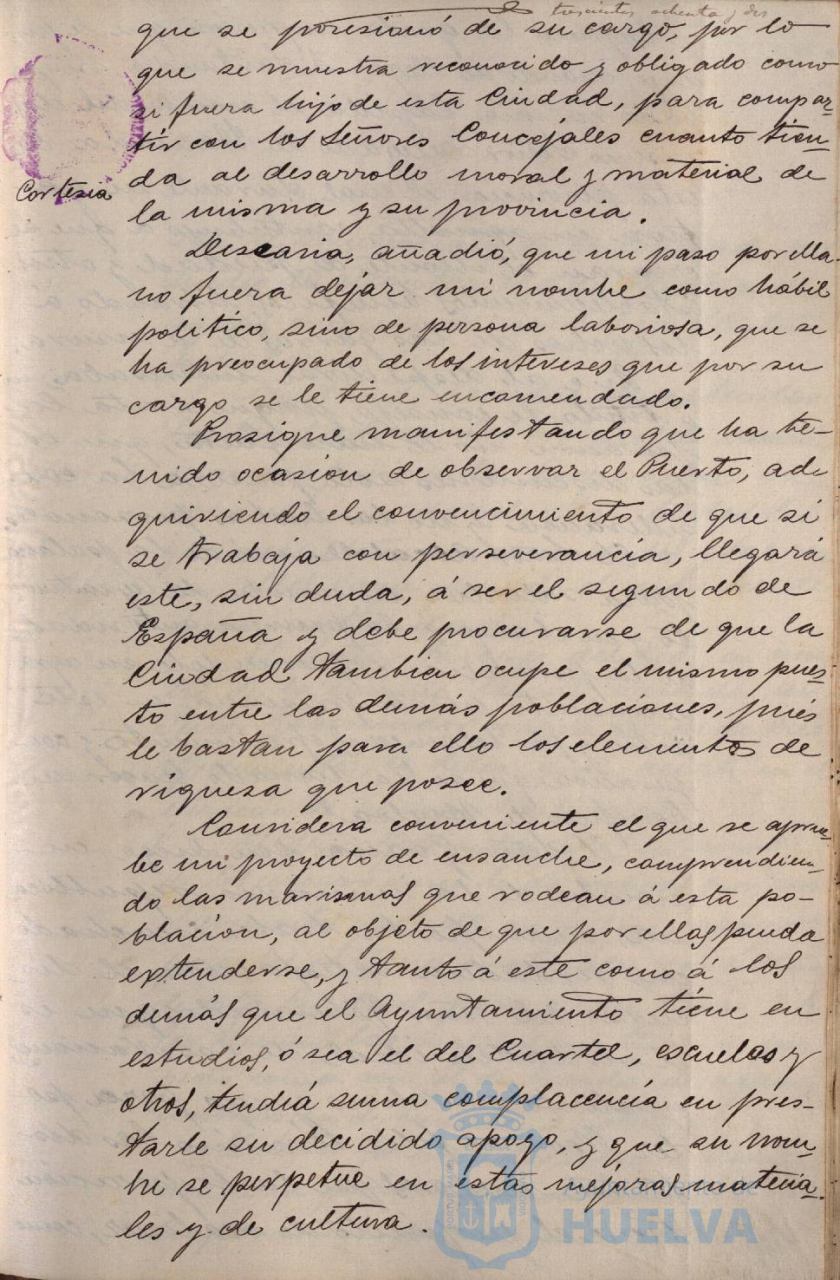 trescientos ochenta y dos
que se posesionó de su cargo, por lo
que se muestra reconocido y obligado como
si fuera hijo de esta Ciudad, para compar-
tir con los Señores Concejales cuanto tien-
da al desarrollo moral y material de
Cortesia
la misma y su provincia.
Desearia, añadió, que mi paso por ella
no fuera dejar mi nombre como hábil
politico, sino de persona laboriosa, que se
ha preocupado de los intereses que por su
cargo se le tiene encomendado.
Prosigue manifestando que ha te-
nido ocasión de observar el Puerto, ad-
quiriendo el convencimiento de que si
se trabaja con perseverancia, llegará
este, sin duda, á ser el segundo de
España y debe procurarse de que la
Ciudad tambien ocupe el mismo pues-
to entre las demás poblaciones, pués
le bastan para ello los elementos de
riqueza que posee.
Considera conveniente el que se aprue-
be un proyecto de ensanche, comprendien-
do las marismas que rodean á esta po-
blación, al objeto de que por ellas pueda
extenderse, y tanto á este como á los
demás que el Ayuntamiento tiene en
estudios, ó sea el del Cuartel, escuelas y
otros, tendrá suma complacencia en pres-
tarle su decidido apoyo, y que su nom-
bre se perpetue en estas mejoras materia-
les y de cultura.
HUELVA